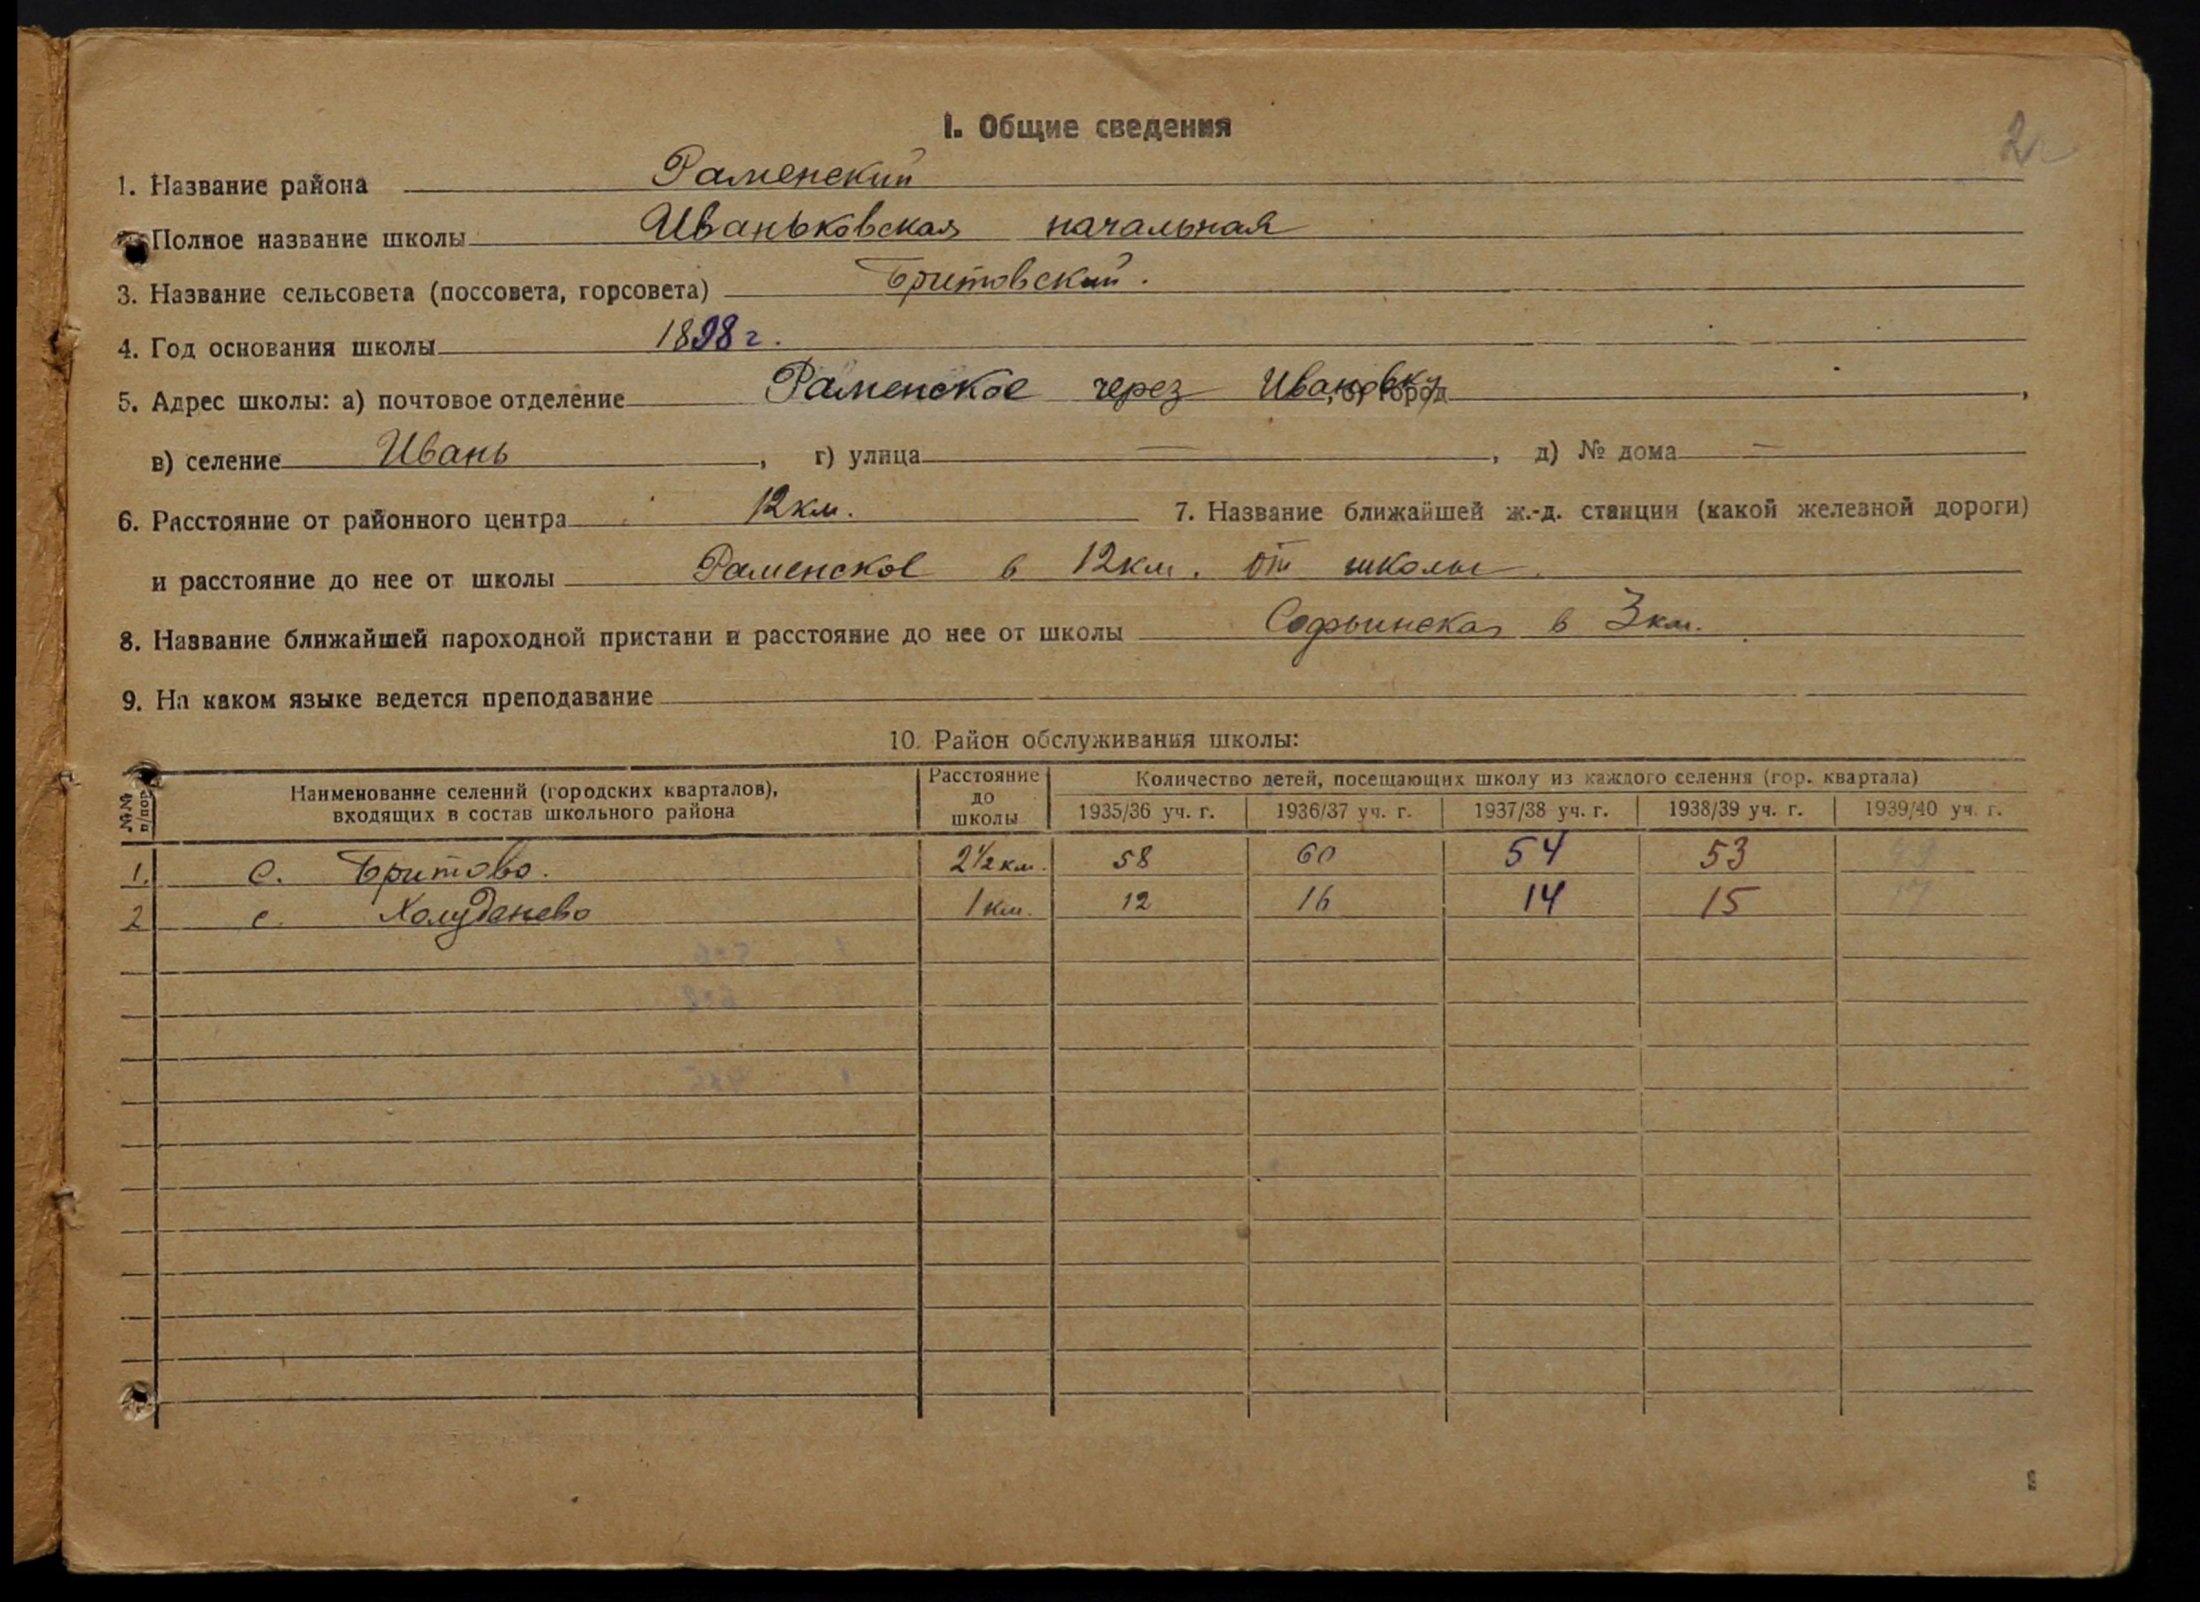 2
I. Общие сведения
1. Название района Раменский
Полное название школы Иваньковская начальная
3. Название сельсовета (поссовета, горсовета) Бритовский.
4. Год основания школы 1898 г.
5. Адрес школы: а) почтовое отделение Раменское через Ивановку б) город ,
в) селение Ивань , г) улица — , д) № дома —
6. Расстояние от районного центра 12 км. 7. Название ближайшей ж.-д. станции (какой железной дороги)
и расстояние до нее от школы Раменское в 12 км. от школы.
8. Название ближайшей пароходной пристани и расстояние до нее от школы Софьинская в 3 км.
9. На каком языке ведется преподавание
10. Район обслуживания школы:
№№ п/п Наименование селений (городских кварталов), входящих в состав школьного района Расстояние до школы Количество детей, посещающих школу из каждого селения (гор. квартала)
1935/36 уч. г. 1936/37 уч. г. 1937/38 уч. г. 1938/39 уч. г. 1939/40 уч. г.
1. с. Бритово. 2 1/2 км. 58 60 54 53
2 с. Холуденево 1 км. 12 16 14 15